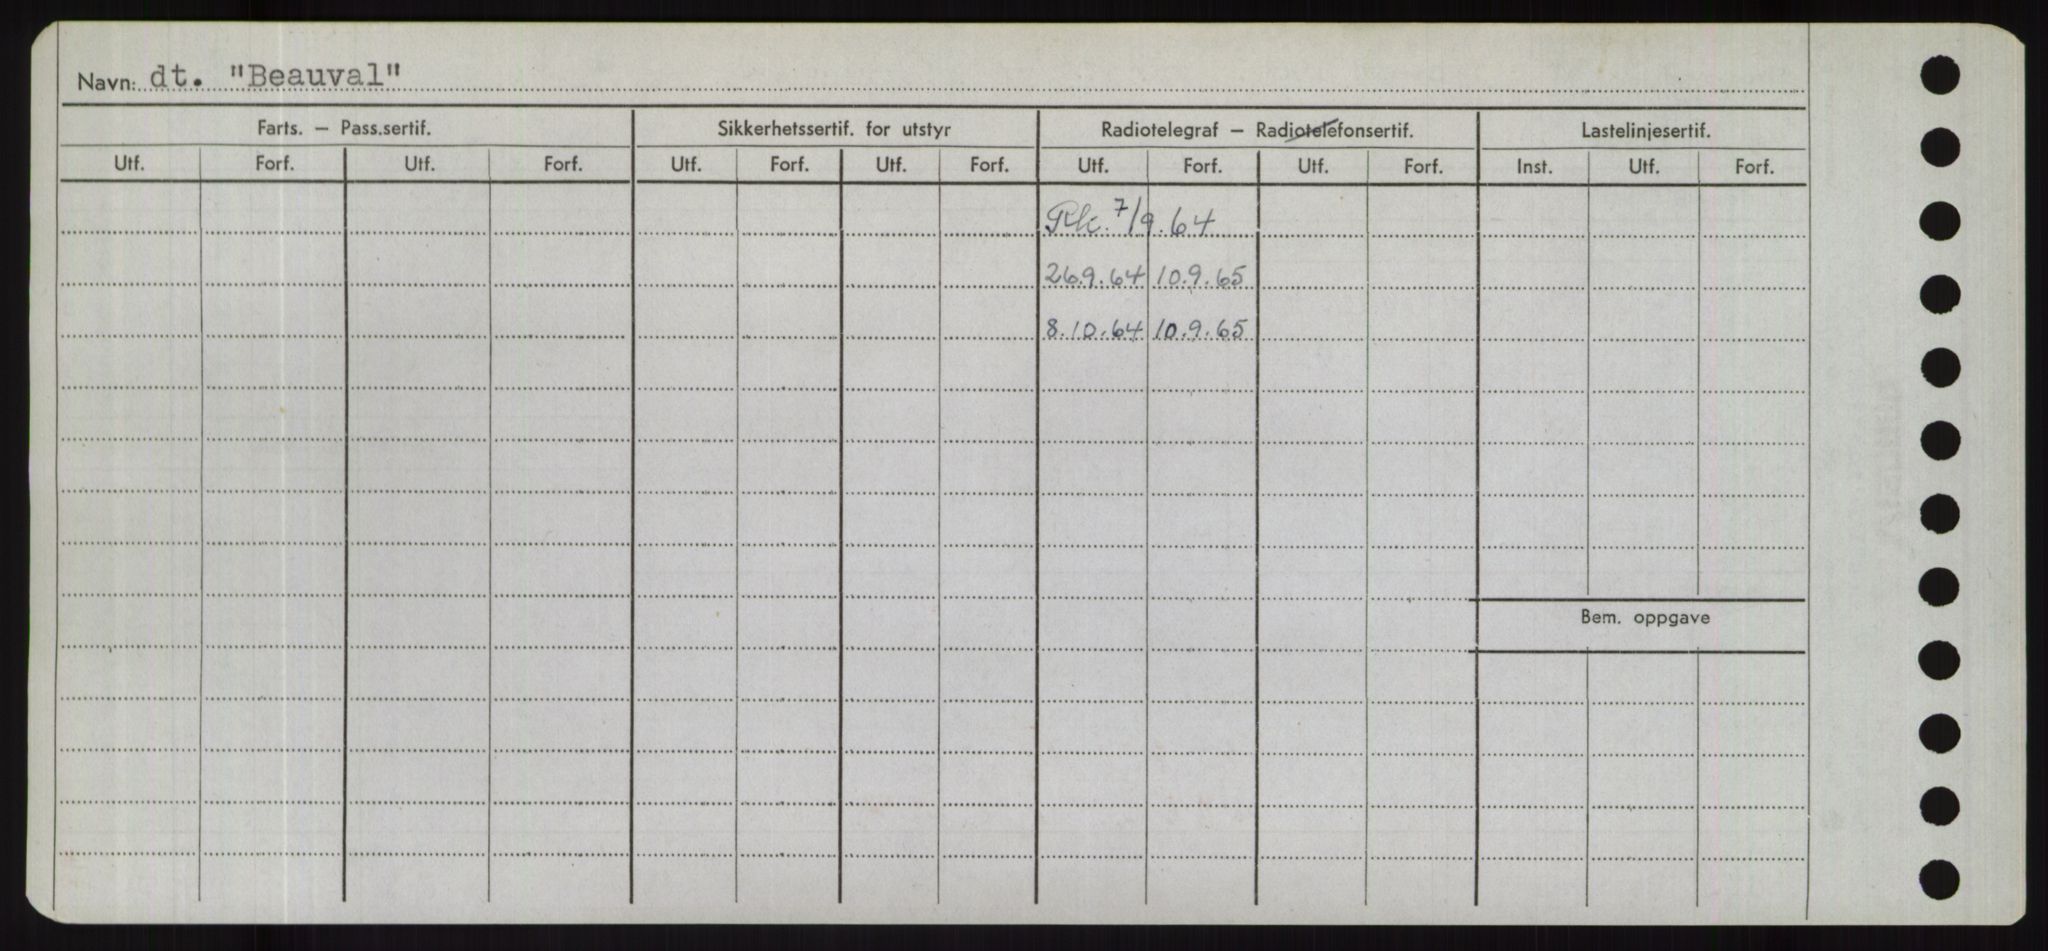 Navn: dt. "Beauval"
Farts. – Pass.sertif. Sikkerhetssertif. for utstyr Radiotelegraf – Radiotelefonsertif. Lastelinjesertif.
Utf. Forf. Utf. Forf. Utf. Forf. Utf. Forf. Utf. Forf. Utf. Forf. Inst. Utf. Forf.
7/9.64
26.9.64 10.9.65
8.10.64 10.9.65
Bem. oppgave